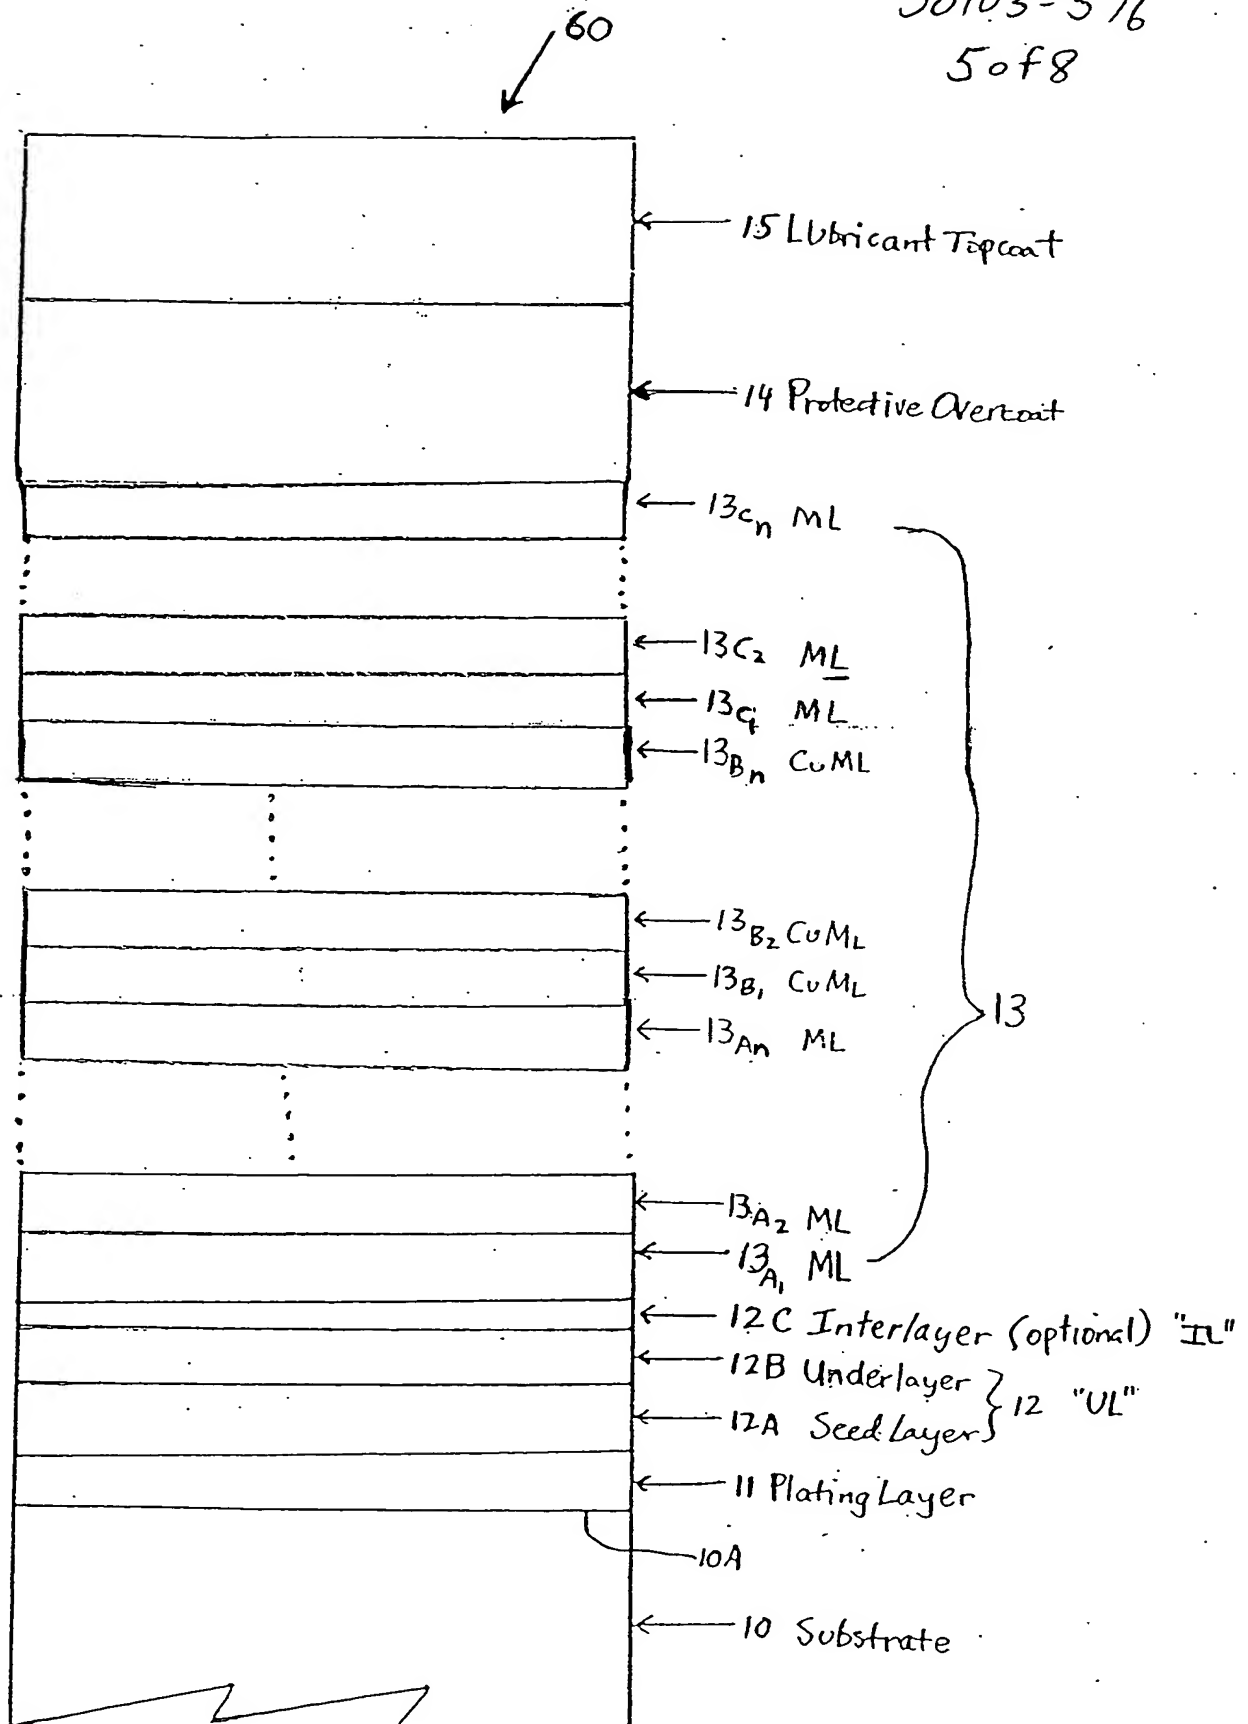 60
5 of 8
15 Lubricant Topcoat
14 Protective Overcoat
13Cn ML
13C2 ML
13C1 ML
13Bn CuML
13B2 CuML
13B1 CuML
13An ML
13
13A2 ML
13A1 ML
12C Interlayer (optional) "IL"
12B Underlayer
12 "UL"
12A Seed Layer
11 Plating Layer
10A
10 Substrate